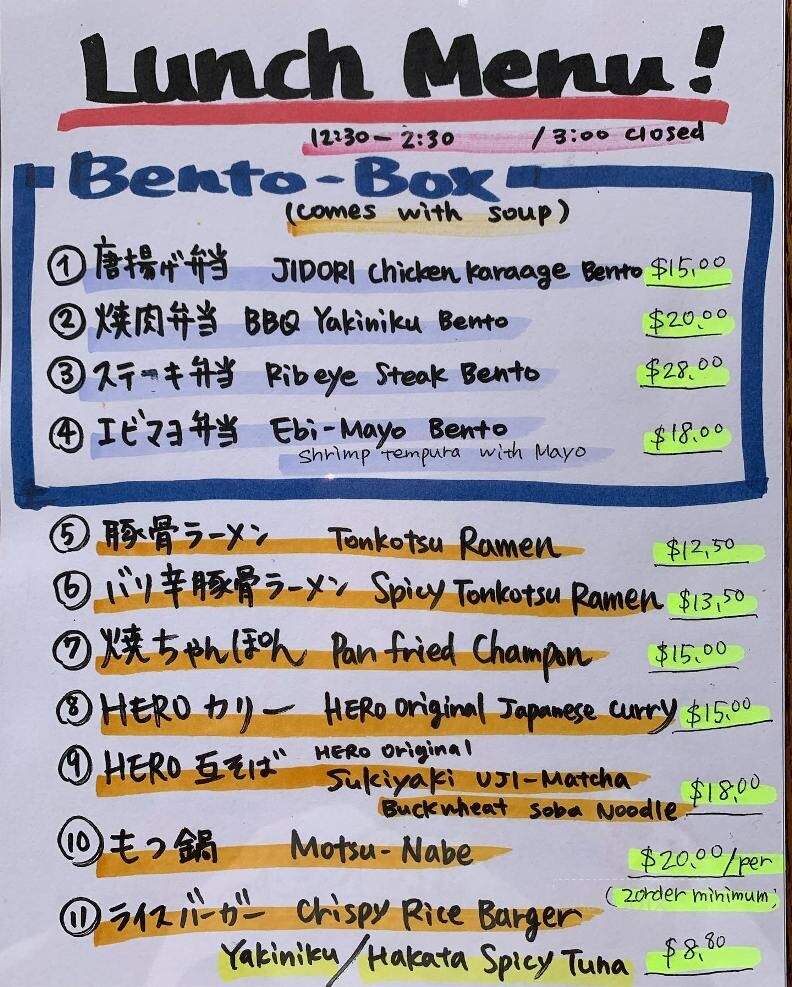 Lunch Menu!
12:30-2:30 /3:00 closed
Bento-Box
(comes with soup)
① 唐揚げ弁当 JIDORI chicken karaage Bento $15.00
② 焼肉弁当 BBQ Yakiniku Bento $20.00
③ ステーキ弁当 Rib eye Steak Bento $28.00
④ エビマヨ弁当 Ebi-Mayo Bento $18.00
Shrimp tempura with Mayo
⑤ 豚骨ラーメン Tonkotsu Ramen $12.50
⑥ バリ辛豚骨ラーメン Spicy Tonkotsu Ramen $13.50
⑦ 焼ちゃんぽん Pan fried Champon $15.00
⑧ HERO カリー HERO original Japanese curry $15.00
⑨ HERO 瓦そば HERO original
Sukiyaki UJI-Matcha
Buckwheat Soba Noodle $18.00
⑩ もつ鍋 Motsu-Nabe $20.00/per
(2order minimum)
⑪ ライスバーガー Crispy Rice Barger
Yakiniku/Hakata Spicy Tuna $8.80